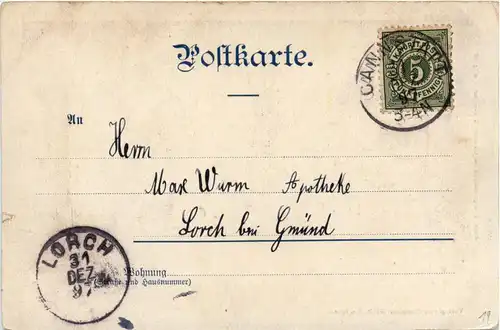 Postkarte.
5
An
Herrn
Max Wurm Apotheke
Lorch bei Gmünd
LORCH
31
DEZ
97
Wohnung
(Straße und Hausnummer)
19